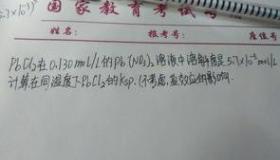 5.7×10⁻³)²
国家教育考试
姓名: 报考号: 座位号
PbCl₂在0.130mol/L的Pb(NO₃)₂溶液中溶解度是5.7×10⁻³mol/L
计算在同温度下PbCl₂的Ksp.(不考虑盐效应的影响)